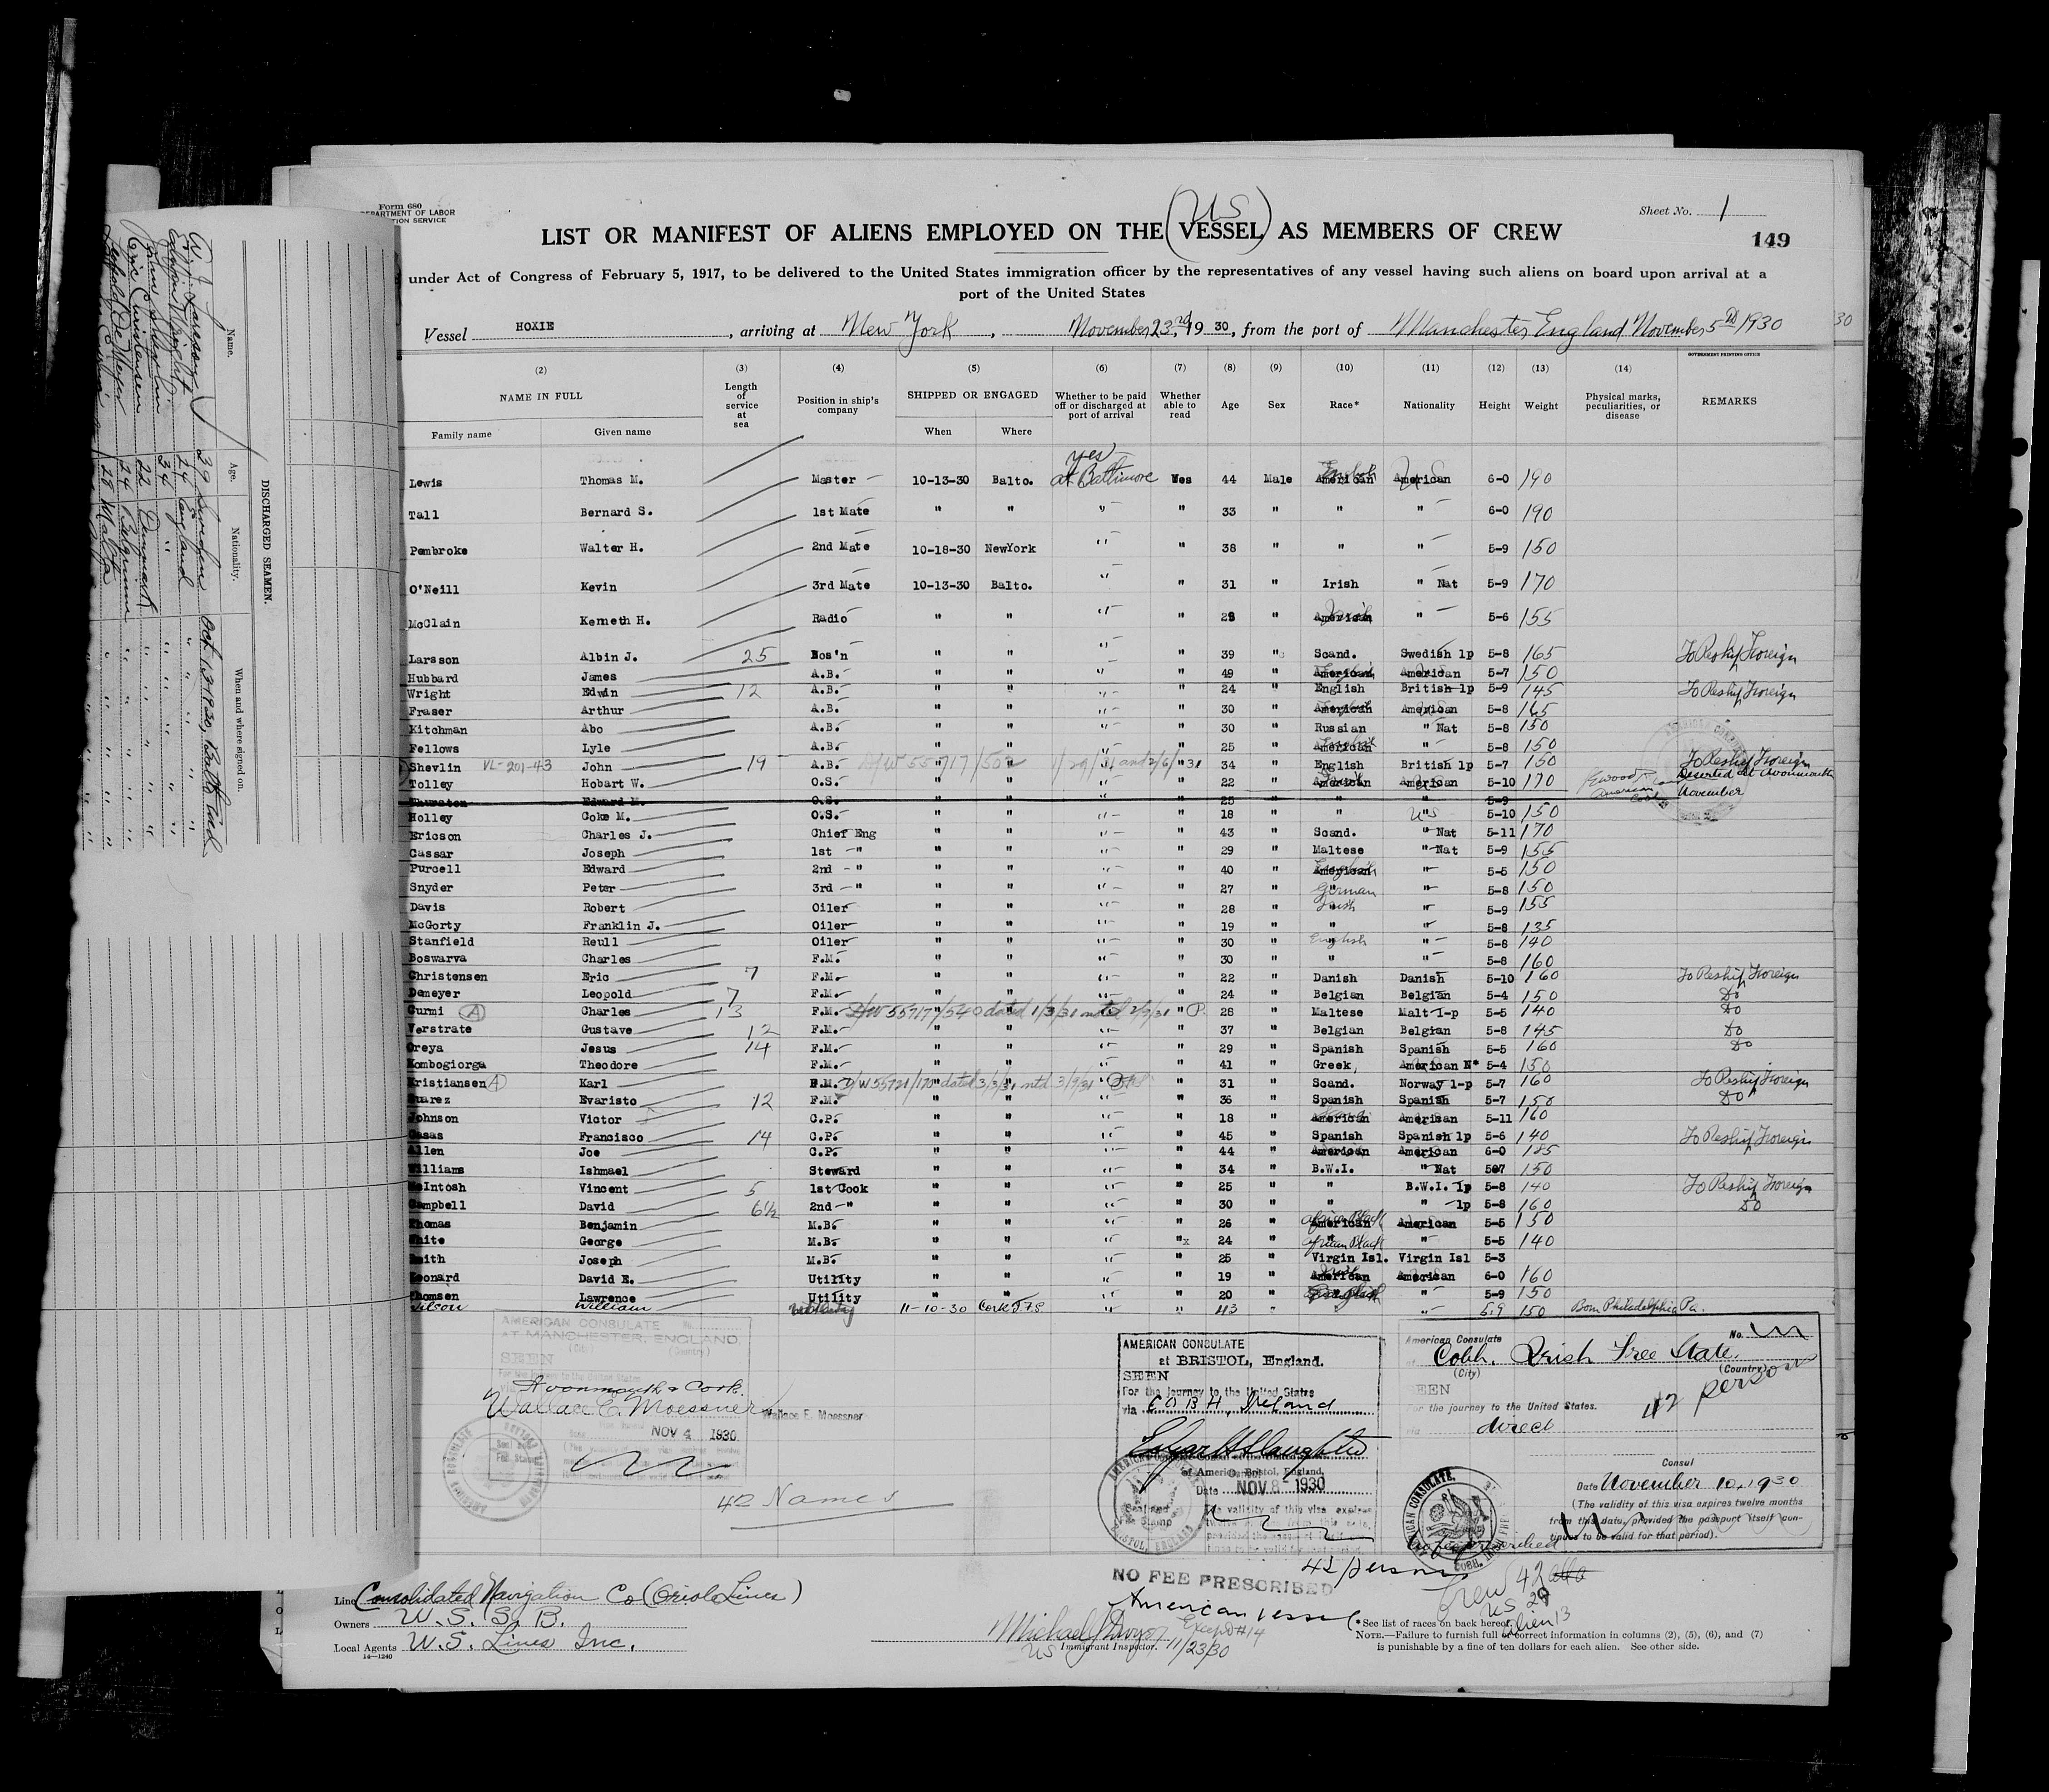 Form 680
DEPARTMENT OF LABOR
Sheet No. 1
LIST OR MANIFEST OF ALIENS EMPLOYED ON THE (US VESSEL) AS MEMBERS OF CREW
149
under Act of Congress of February 5, 1917, to be delivered to the United States immigration officer by the representatives of any vessel having such aliens on board upon arrival at a
port of the United States
Vessel HOXIE, arriving at New York, November 23rd, 1930, from the port of Manchester, England November 5th 1930
GOVERNMENT PRINTING OFFICE
(2) (3) (4) (5) (6) (7) (8) (9) (10) (11) (12) (13) (14)
NAME IN FULL Length of service at sea Position in ship's company SHIPPED OR ENGAGED Whether to be paid off or discharged at port of arrival Whether able to read Age Sex Race* Nationality Height Weight Physical marks, peculiarities, or disease REMARKS
Family name Given name When Where
Lewis Thomas M. Master 10-13-30 Balto. yes at Baltimore Yes 44 Male American English American 6-0 190
Tall Bernard S. 1st Mate " " " " 33 " " " 6-0 190
Pembroke Walter H. 2nd Mate 10-18-30 NewYork " " 38 " " " 5-9 150
O'Neill Kevin 3rd Mate 10-13-30 Balto. " " 31 " Irish " Nat 5-9 170
McClain Kenneth H. Radio " " " " 28 " American " 5-6 155
Larsson Albin J. 25 Bos'n " " " " 39 " Scand. Swedish 1p 5-8 165 To Reship Foreign
Hubbard James A.B. " " " " 49 " American American 5-7 150
Wright Edwin 12 A.B. " " " " 24 " English British 1p 5-9 145 To Reship Foreign
Fraser Arthur A.B. " " " " 30 " American American 5-8 165
Kitchman Abo A.B. " " " " 30 " Russian " Nat 5-8 150
Fellows Lyle A.B. " " " " 25 " American " 5-8 150
Shevlin VL-201-43 John 19 A.B. D/W 55717/502 1/29/31 and 2/6/31 34 " English British 1p 5-7 150 To Reship Foreign
Tolley Hobart W. O.S. " " " " 22 " American American 5-10 170 Deserted at Avonmouth
Thurston Edward M. O.S. " " " 25 " " 5-9 November
Holley Coke M. O.S. " " " " 18 " " US 5-10 150
Ericson Charles J. Chief Eng " " " " 43 " Scand. " Nat 5-11 170
Cassar Joseph 1st " " " " " 29 " Maltese " Nat 5-9 155
Purcell Edward 2nd " " " " " 40 " American English " 5-5 150
Snyder Peter 3rd " " " " " 27 " German " 5-8 150
Davis Robert Oiler " " " " 28 " Irish " 5-9 155
McGorty Franklin J. Oiler " " " " 19 " " " 5-8 135
Stanfield Reull Oiler " " " " 30 " English " 5-8 140
Boswarva Charles F.M. " " " " 30 " " " 5-8 160
Christensen Eric 7 F.M. " " " " 22 " Danish Danish 5-10 160 To Reship Foreign
Demeyer Leopold 7 F.M. " " " " 24 " Belgian Belgian 5-4 150 Do
Curmi (A) Charles 13 F.M. D/W 55717/540 dated 1/3/31 28 " Maltese Malt 1-p 5-5 140 Do
Verstrate Gustave 12 F.M. " " " " 37 " Belgian Belgian 5-8 145 Do
Oreya Jesus 14 F.M. " " " " 29 " Spanish Spanish 5-5 160 Do
Kombogiorga Theodore F.M. " " " " 41 " Greek American N* 5-4 150
Kristiansen (A) Karl F.M. D/W 55721/170 dated 3/3/31 31 " Scand. Norway 1-p 5-7 160 To Reship Foreign
Suarez Evaristo 12 F.M. " " " " 36 " Spanish Spanish 5-7 150 Do
Johnson Victor C.P. " " " " 18 " American American 5-11 160
Casas Francisco 14 C.P. " " " " 45 " Spanish Spanish 1p 5-6 140 To Reship Foreign
Allen Joe C.P. " " " " 44 " American American 6-0 185
Williams Ishmael Steward " " " " 34 " B.W.I. " Nat 5-7 150
McIntosh Vincent 5 1st Cook " " " " 25 " " B.W.I. 1p 5-8 140 To Reship Foreign
Campbell David 6½ 2nd " " " " " 30 " " " 1p 5-8 160 Do
Thomas Benjamin M.B. " " " " 26 " American African Black American 5-5 150
White George M.B. " " " "x 24 " African Black " 5-5 140
Smith Joseph M.B. " " " " 25 " Virgin Isl. Virgin Isl 5-3
Leonard David E. Utility " " " " 19 " American Irish American 6-0 160
Thomsen Lawrence Utility " " " " 20 " English " 5-9 150
Wilson William Utility 11-10-30 Cork I.F.S. " " 43 " " 5.9 150 Born Philadelphia Pa.
AMERICAN CONSULATE
AT MANCHESTER, ENGLAND.
(City) (Country)
SEEN
For the journey to the United States
Avonmouth & Cork.
Wallace E. Moessner Wallace E. Moessner
NOV 4 1930
42 Names
AMERICAN CONSULATE
at BRISTOL, England.
SEEN
For the journey to the United States
via COBH, Ireland
of America, Bristol, England.
Date NOV 8 - 1930
The validity of this visa expires
NO FEE PRESCRIBED
American vessel
American Consulate No.
Cobh. Irish Free State.
(City) (Country)
SEEN
42 person
For the journey to the United States.
via direct
Consul
Date November 10, 1930
(The validity of this visa expires twelve months
from this date, provided the passport itself con-
tinues to be valid for that period).
Crew 42
US 29
alien 13
Line Consolidated Navigation Co (Oriole Lines)
Owners U.S.S.B.
Local Agents U.S. Lines Inc.
14—1240
Immigrant Inspector.
US 11/23/30
*See list of races on back hereof.
NOTE.—Failure to furnish full or correct information in columns (2), (5), (6), and (7)
is punishable by a fine of ten dollars for each alien. See other side.
DISCHARGED SEAMEN.
Name. Age. Nationality. When and where signed on.
39 Sweden Oct 13 1930, Balto Md
Edwin Wright 24 England " "
John Shevlin 34 " " "
Eric Christensen 22 Denmark " "
Leopold De Meyer 24 Belgium " "
28 Malta " "